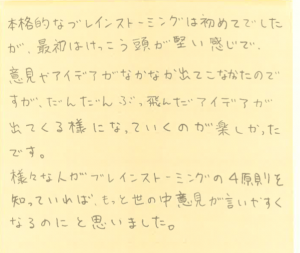 本格的なブレインストーミングは初めてでした
が、最初はけっこう頭が堅い感じで、
意見やアイデアがなかなか出てこなかたので
すが、だんだんぶっ飛んだアイデアが
出てくる様になっていくのが楽しかった
です。
様々なんがブレインストーミングの4原則を
知っていれば、もっと世の中意見が言いやすく
なるのにと思いました。